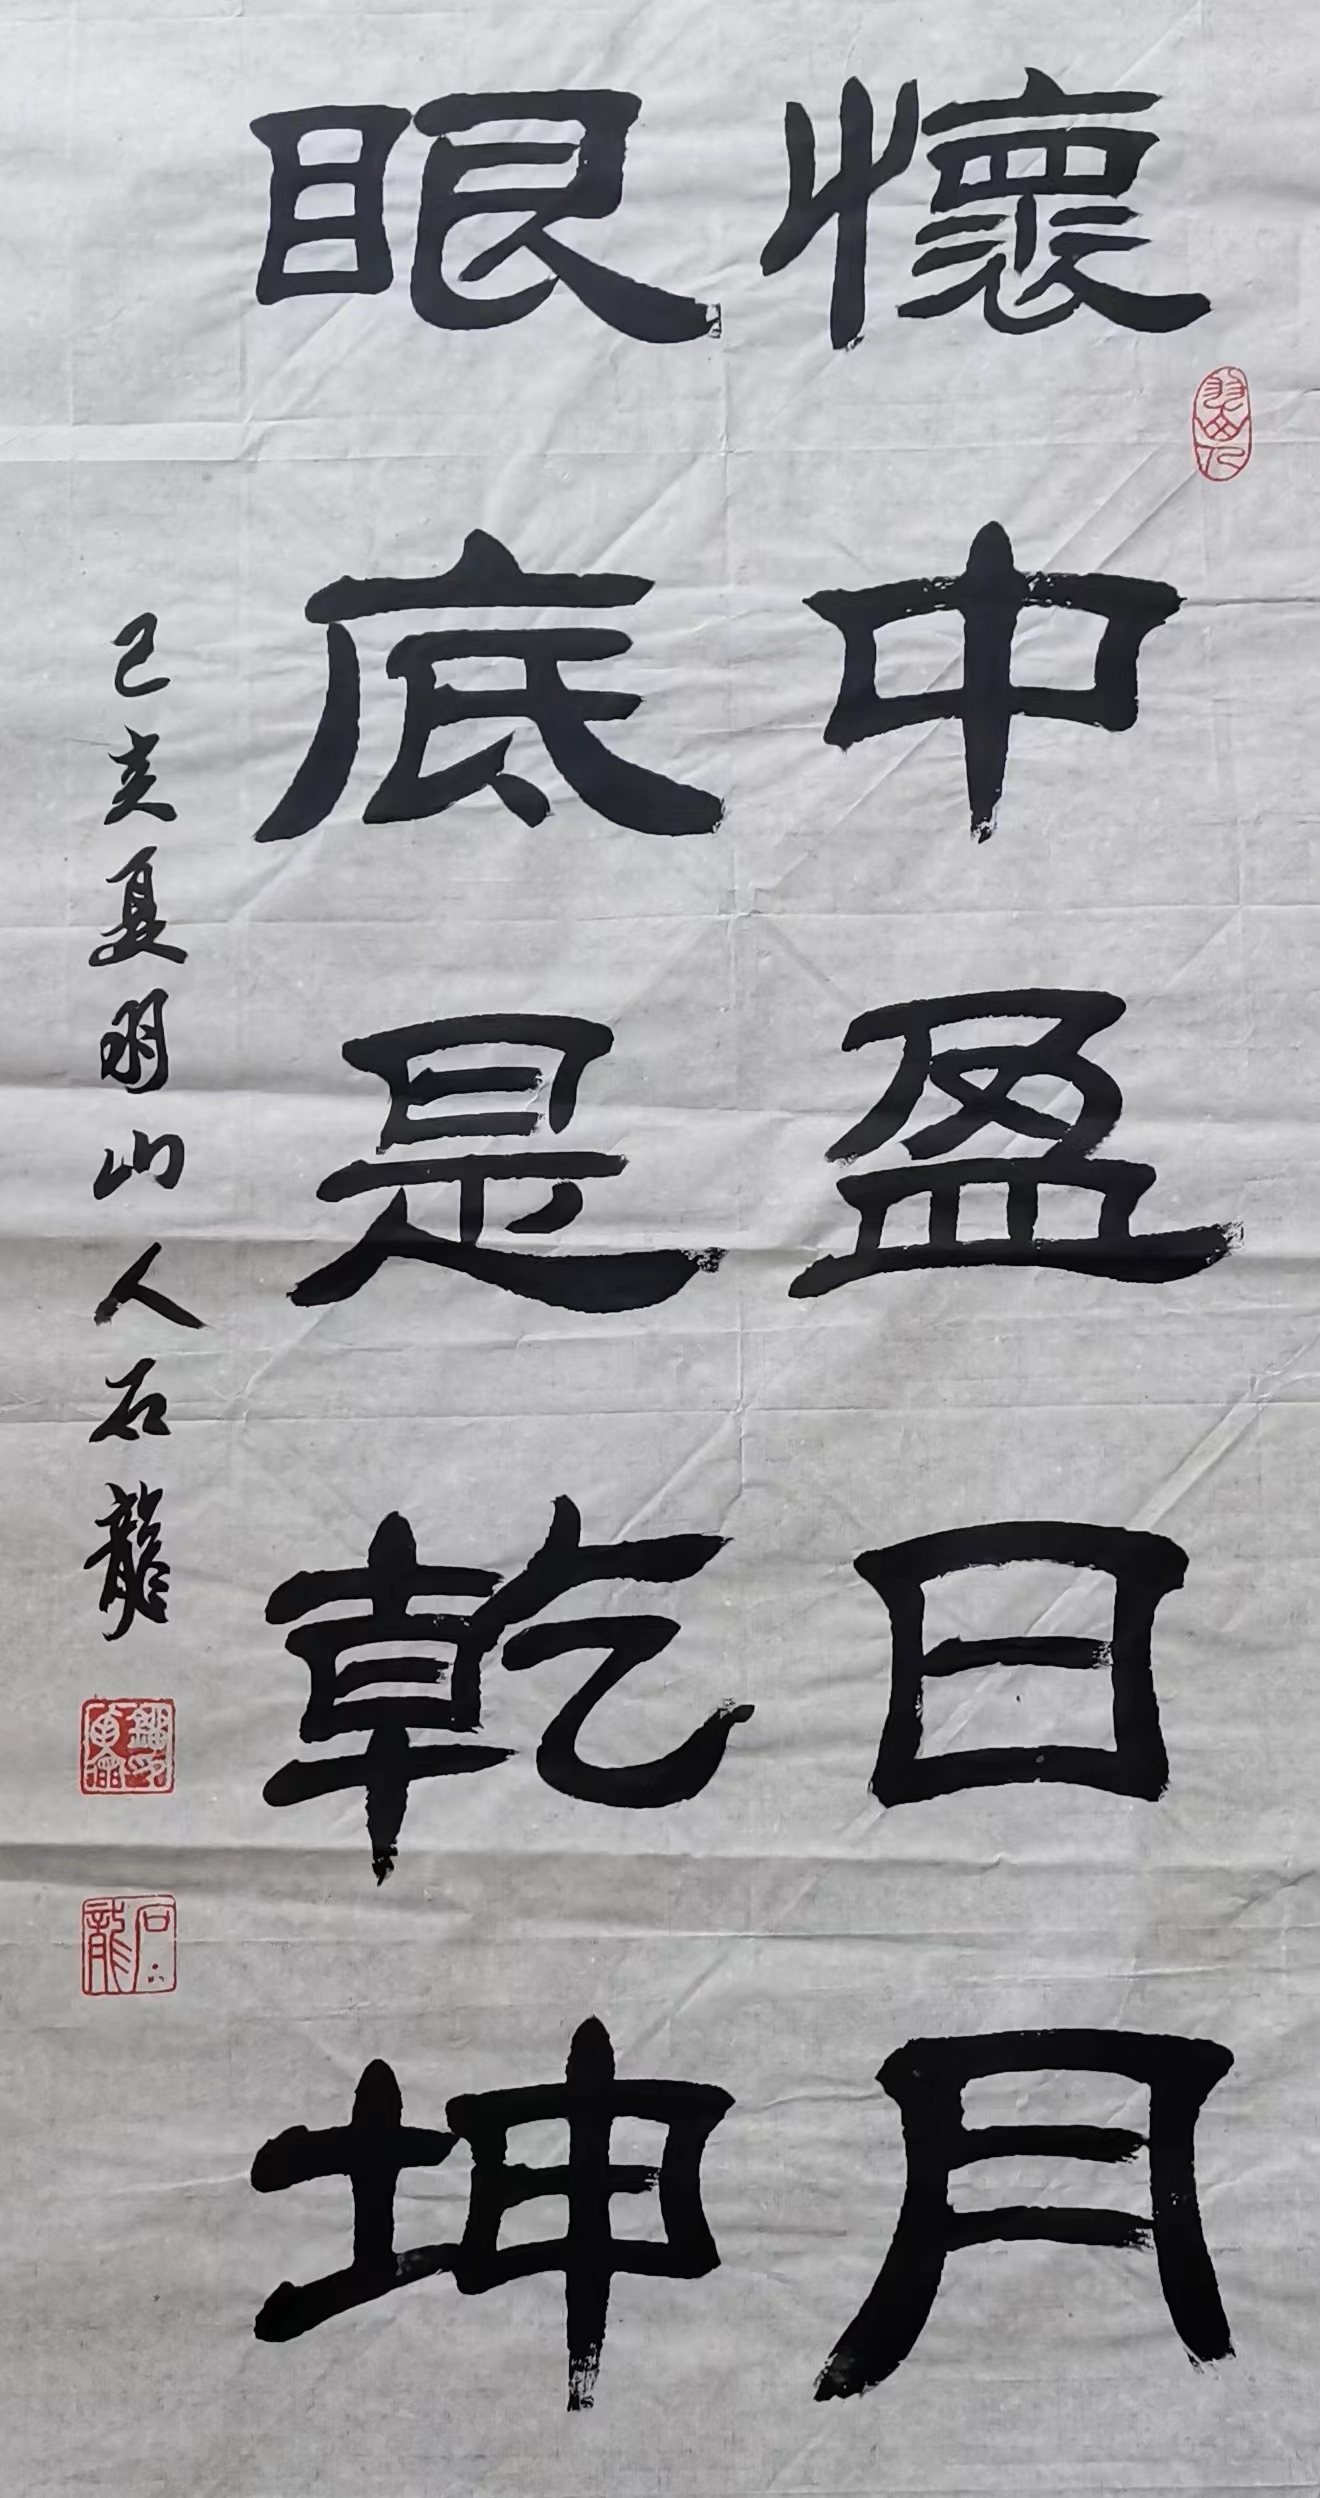 懷中盈日月
眼底是乾坤
己亥夏羽山人石龍
石龍